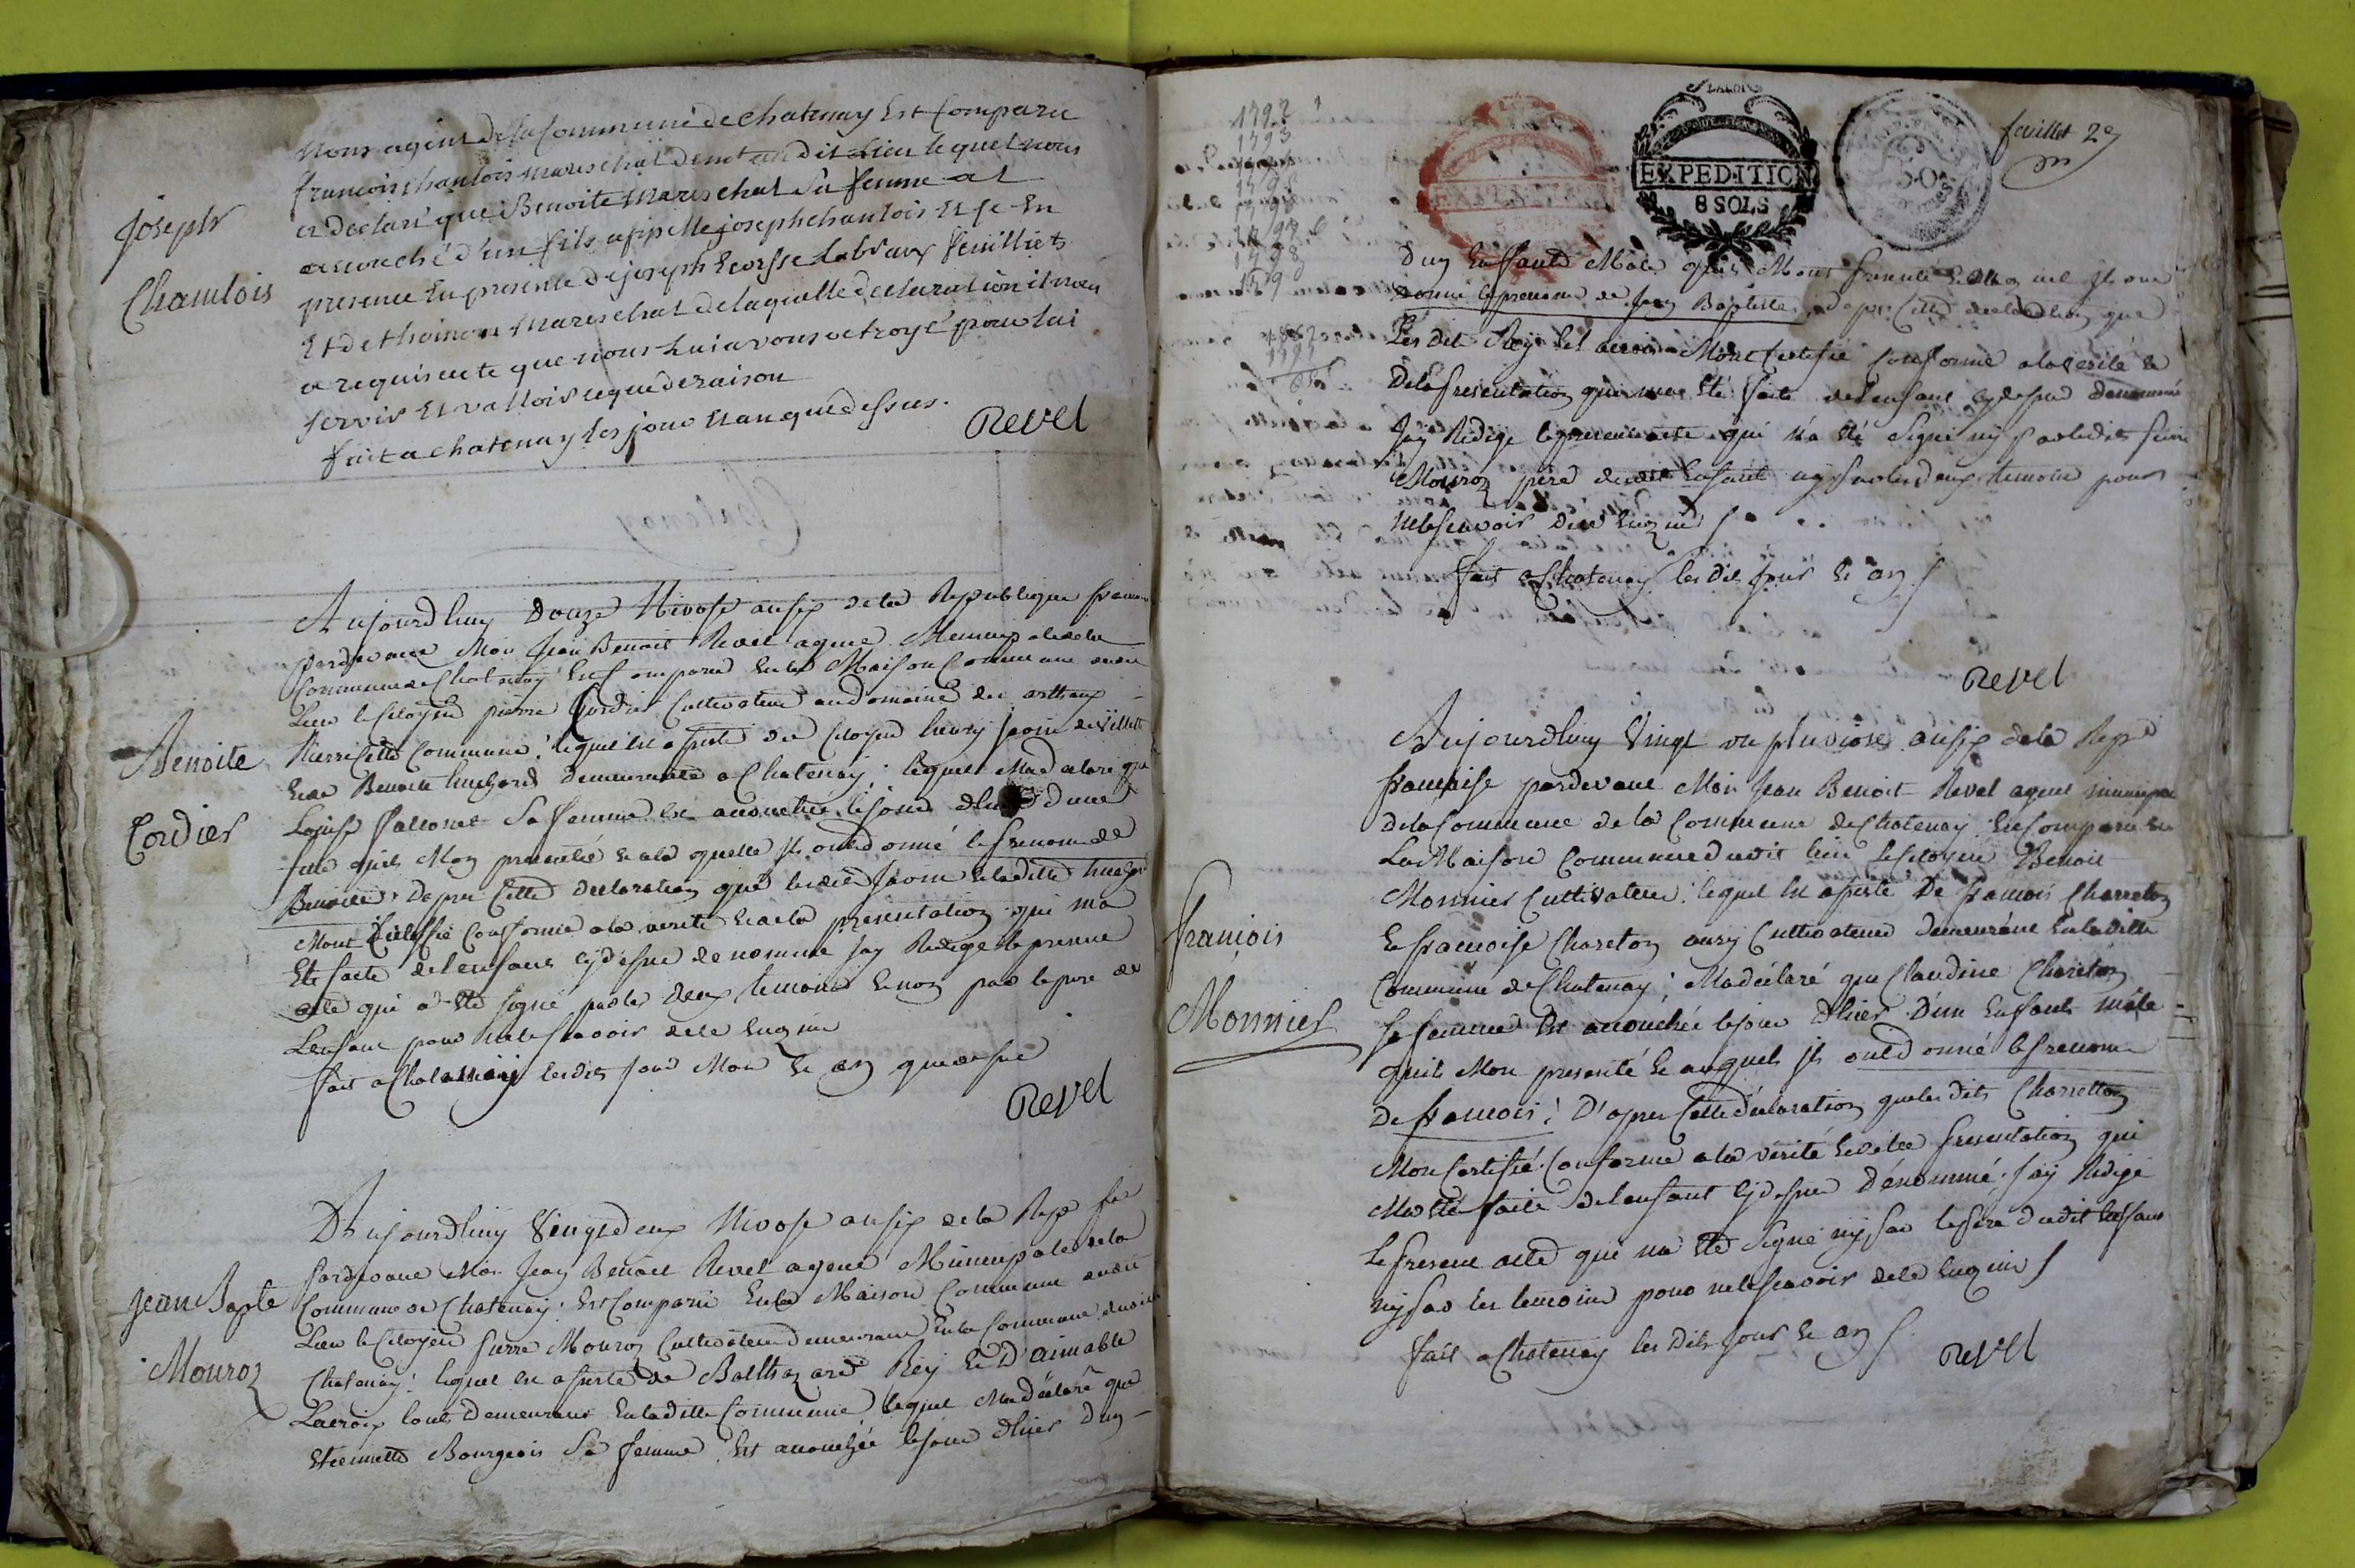 Nous agent de la Commune de chatenay Est Comparu
francois chanlois mareschal demt au dit Lieu lequel nous
a declaré que Benoite mareschal sa femme at
acouché d'un fils appelle joseph chanlois Et se En
presence En presente de joseph Labvaux
Et de thoinon mareschal de laquelle declaration il
a requis acte que nous Lui avons octroyé pour lui
servir Et valloir ce que de raison
fait a chatenay les jour Et an que dessus.
Revel
joseph
Chanlois
Aujourdhuy Douze Nivose an six de la Republique
pardevant Moi Jean Benoit Revel agent Municipal de la
Commune de Chatenay Est Comparu En la Maison Commune dudit
Lieu le Citoyen pierre Cordier Cultivateur au Domaine des
Rierre Cette Commune : lequel Est assisté du Citoyen henry
Et de Benoite demeurante a Chatenay : lequel Ma declaré que
Louise sa femme Est acouchée le jour dhier dune
fille quils Mon presentée Et a la quelle ils ont donné le prenom de
Benoite, Dapres Cette declaration que lesdits Et ladite
Mont Certiffié Conforme a la verité Et a la presentation qui ma
Ete faite de lenfant cy dessus denommé Jay Redigé le present
acte qui a Eté signé par les deux temoins Et non par le pere de
Lenfant pour ne le scavoir de ce Enquis
fait a Chatenay lesdits jour Mois Et an que dessus
Revel
Benoite
Cordier
Aujourdhuy Vingt deux Nivose an six de la Rep
pardevant Moi Jean Benoit Revel agent Municipal de la
Commune de Chatenay : Est Comparu En la Maison Commune dudit
Lieu le Citoyen pierre Mouron Cultivateur demeurant En la Commune dudit
Chatenay : lequel Est assisté de Balthazard Rey Et D'aimable
Lacroix tous Demeurant En ladite Commune lequel Ma déclaré que
Etiennette Bourgeois Sa femme Est acouchée le jour dhier dun
jean Bapte
Mouron
1792
1793
1798
EXPEDITION
8 SOLS
50
feuillet 29
Dun Enfant Male quils Mont presenté Et auquel ils ont
donné le prenom de Jean Baptiste, dapres Cette declaration que
Les dit Rey Et Lacroix Mont Certifié Conforme a la verité Et
De la presentation qui ma Eté faite de lenfant cy dessus denommé
Jay Redigé le present acte qui n'a Eté Signé ny par ledit pierre
Mouron père dudit Enfant ny par les deux temoins pour
ne le scavoir de ce Enquis
fait a Chatenay les dits jour Et an
Revel
Aujourdhuy Vingt un pluviose an six de la Repe
francaise pardevant Moi Jean Benoit Revel agent municipal
de la Commune de la Commune de Chatenay Est Comparu En
La Maison Commune dudit lieu le Citoyen Benoit
Monnier Cultivateur : lequel Est assisté De francois Charreton
Et francoise Chareton aussy Cultivateur demeurant En ladite
Commune de Chatenay ; Ma déclaré que Claudine Chareton
Sa femme Est acouchée le jour dhier D'un Enfant mâle
quils Mon presenté Et auquel ils ont donné le prenom
De francois : D'apres Cette déclaration que les dits Charretton
Mon Certifié Conforme a la vérité Et de la presentation qui
Ma Eté faite de lenfant cy dessus dénommé. Jay Redigé
Le present acte qui na Eté Signé ny par le pere dudit Enfant
ny par les temoins pour ne le scavoir de ce Enquis
fait a Chatenay les dits jour Et an
Revel
francois
Monnier